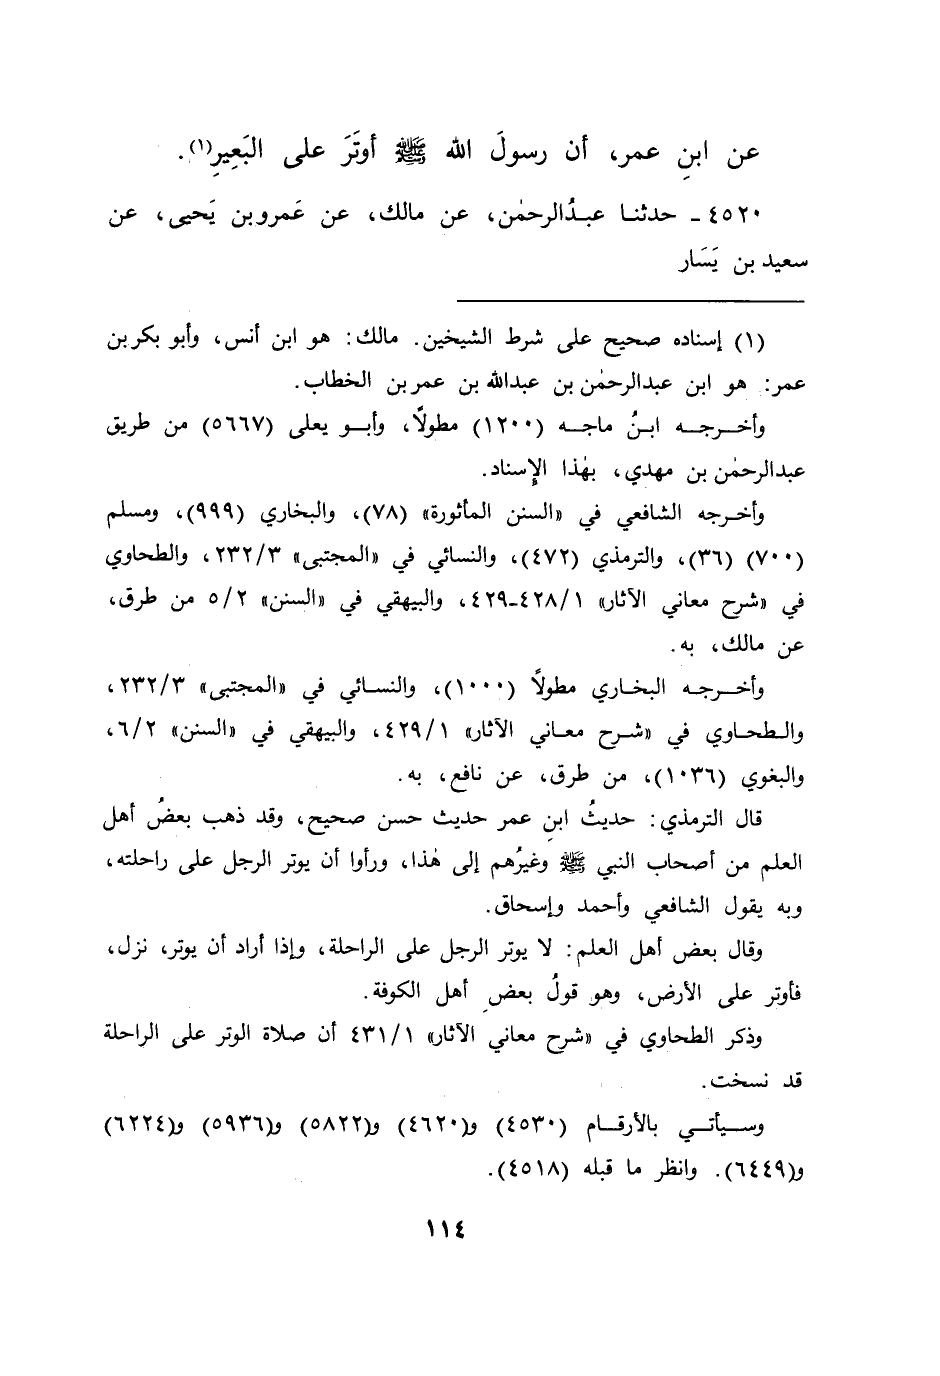 عن ابنِ عمر، أن رسولَ الله ﷺ أوتَرَ على البَعِيرِ(١).
٤٥٢٠ ـ حدثنا عبدُالرحمٰن، عن مالك، عن عَمرو بن يَحيى، عن
سعيد بن يَسَار
(١) إسناده صحيح على شرط الشيخين. مالك: هو ابن أنس، وأبو بكر بن
عمر: هو ابن عبدالرحمٰن بن عبدالله بن عمر بن الخطاب.
وأخرجه ابنُ ماجه (١٢٠٠) مطولًا، وأبو يعلى (٥٦٦٧) من طريق
عبدالرحمٰن بن مهدي، بهٰذا الإِسناد.
وأخرجه الشافعي في «السنن المأثورة» (٧٨)، والبخاري (٩٩٩)، ومسلم
(٧٠٠) (٣٦)، والترمذي (٤٧٢)، والنسائي في «المجتبى» ٢٣٢/٣، والطحاوي
في «شرح معاني الآثار» ٤٢٨/١-٤٢٩، والبيهقي في «السنن» ٥/٢ من طرق،
عن مالك، به.
وأخرجه البخاري مطولًا (١٠٠٠)، والنسائي في «المجتبى» ٢٣٢/٣،
والطحاوي في «شرح معاني الآثار» ٤٢٩/١، والبيهقي في «السنن» ٦/٢،
والبغوي (١٠٣٦)، من طرق، عن نافع، به.
قال الترمذي: حديثُ ابنِ عمر حديث حسن صحيح، وقد ذهب بعضُ أهل
العلم من أصحاب النبي ﷺ وغيرُهم إلى هٰذا، ورأوا أن يوتر الرجل على راحلته،
وبه يقول الشافعي وأحمد وإسحاق.
وقال بعض أهل العلم: لا يوتر الرجل على الراحلة، وإذا أراد أن يوتر، نزل،
فأوتر على الأرض، وهو قولُ بعضِ أهل الكوفة.
وذكر الطحاوي في «شرح معاني الآثار» ٤٣١/١ أن صلاة الوتر على الراحلة
قد نسخت.
وسيأتي بالأرقام (٤٥٣٠) و(٤٦٢٠) و(٥٨٢٢) و(٥٩٣٦) و(٦٢٢٤)
و(٦٤٤٩). وانظر ما قبله (٤٥١٨).
١١٤